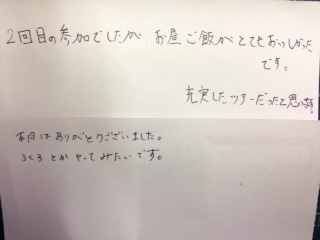 2回目の参加でしたが、お昼ご飯がとてもおいしかった
です。
充実したツアーだったと思い
本日はありがとうございました。
ろくろとかやってみたいです。